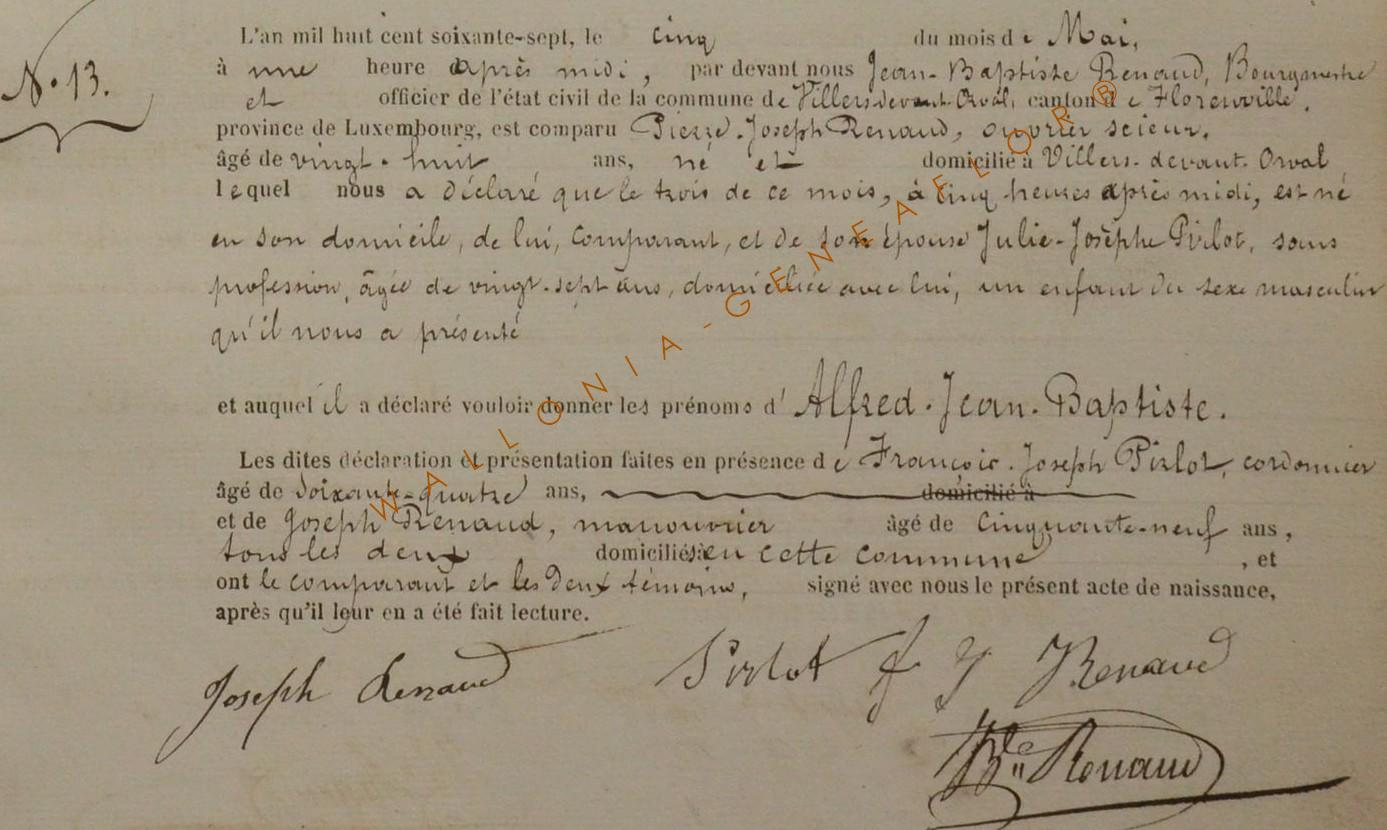 N° 13.
L'an mil huit cent soixante-sept, le cinq du mois de Mai,
à une heure après midi, par devant nous Jean-Baptiste Renaud, Bourgmestre
et officier de l'état civil de la commune de Villers devant Orval, canton de Florenville,
province de Luxembourg, est comparu Pierre-Joseph Renaud, ouvrier scieur,
âgé de vingt-huit ans, né et domicilié à Villers-devant-Orval
lequel nous a déclaré que le trois de ce mois, à cinq heures après midi, est né
en son domicile, de lui, comparant, et de son épouse Julie-Josèphe Pirlot, sans
profession, âgée de vingt-sept ans, domiciliée avec lui, un enfant du sexe masculin
qu'il nous a présenté
et auquel il a déclaré vouloir donner les prénoms d'Alfred-Jean-Baptiste.
Les dites déclaration et présentation faites en présence de François-Joseph Pirlot, cordonnier
âgé de soixante-quatre ans, domicilié à
et de Joseph Renaud, manouvrier âgé de cinquante-neuf ans,
tous les deux domiciliés en cette commune, et
ont le comparant et les deux témoins, signé avec nous le présent acte de naissance,
après qu'il leur en a été fait lecture.
Joseph Renaud Pirlot f J Renaud
Bte Renaud
WALLONIA-GENEAFLOR®